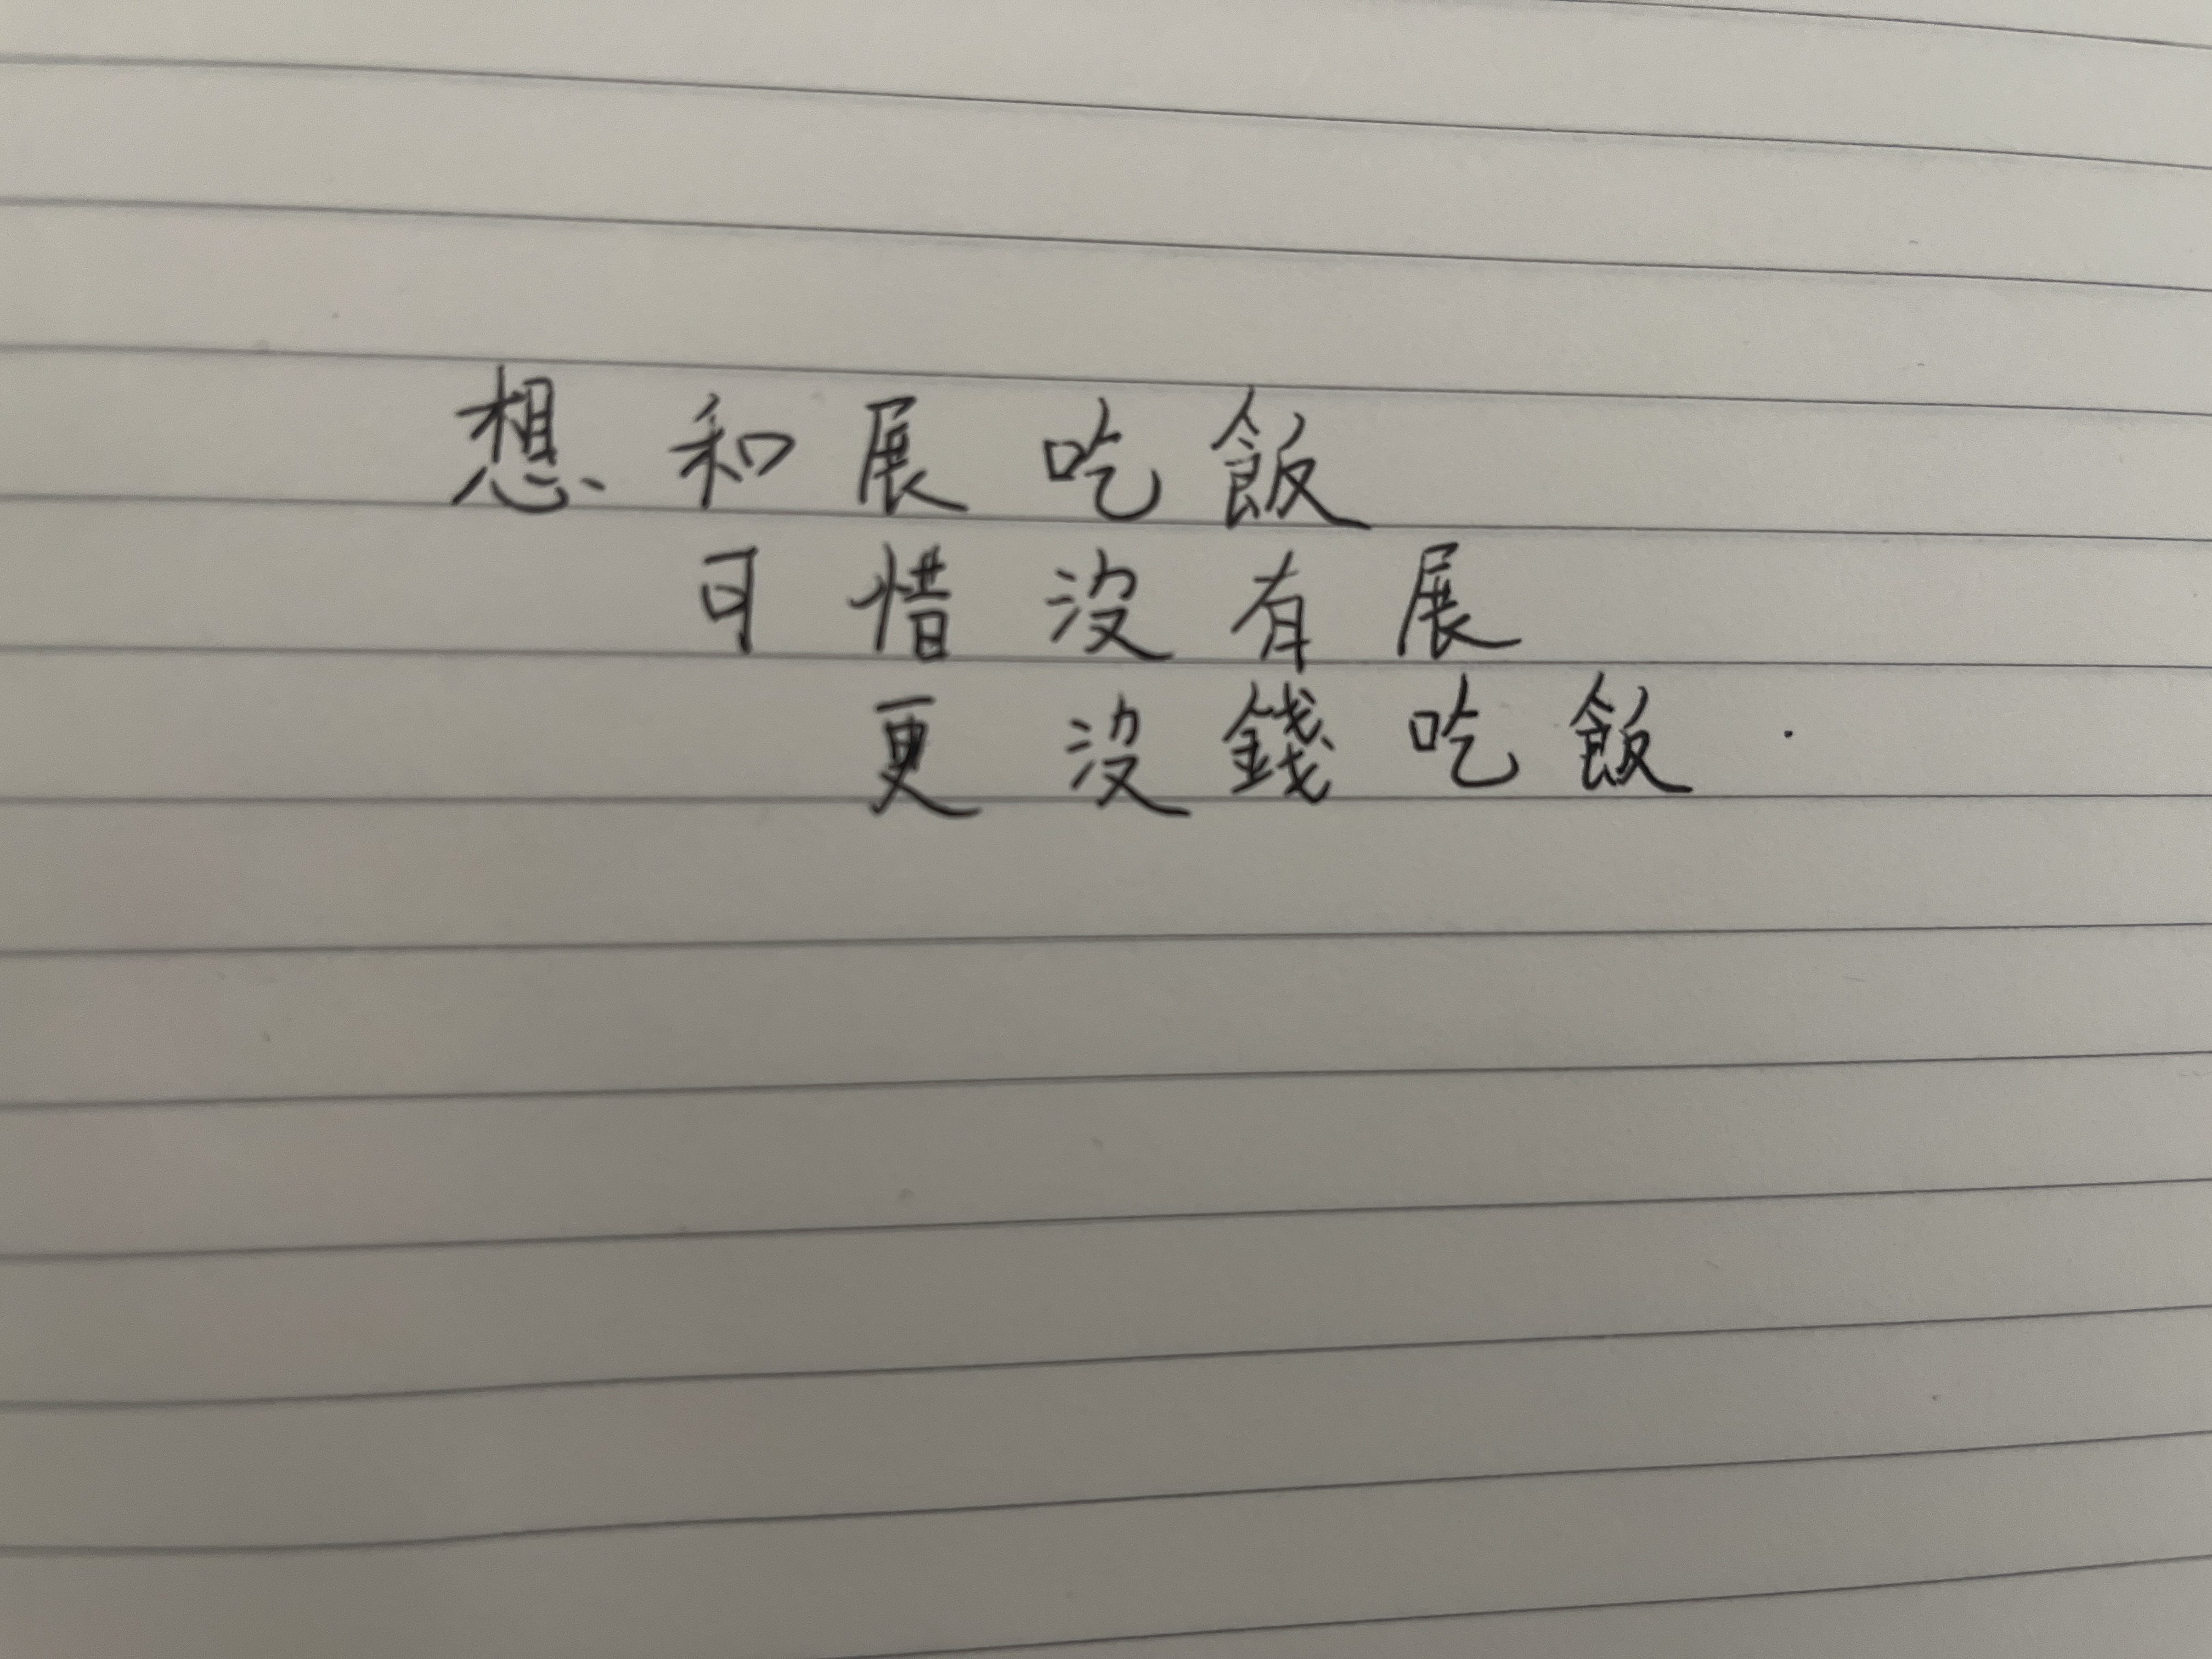 想和展吃飯
可惜沒有展
更沒錢吃飯.